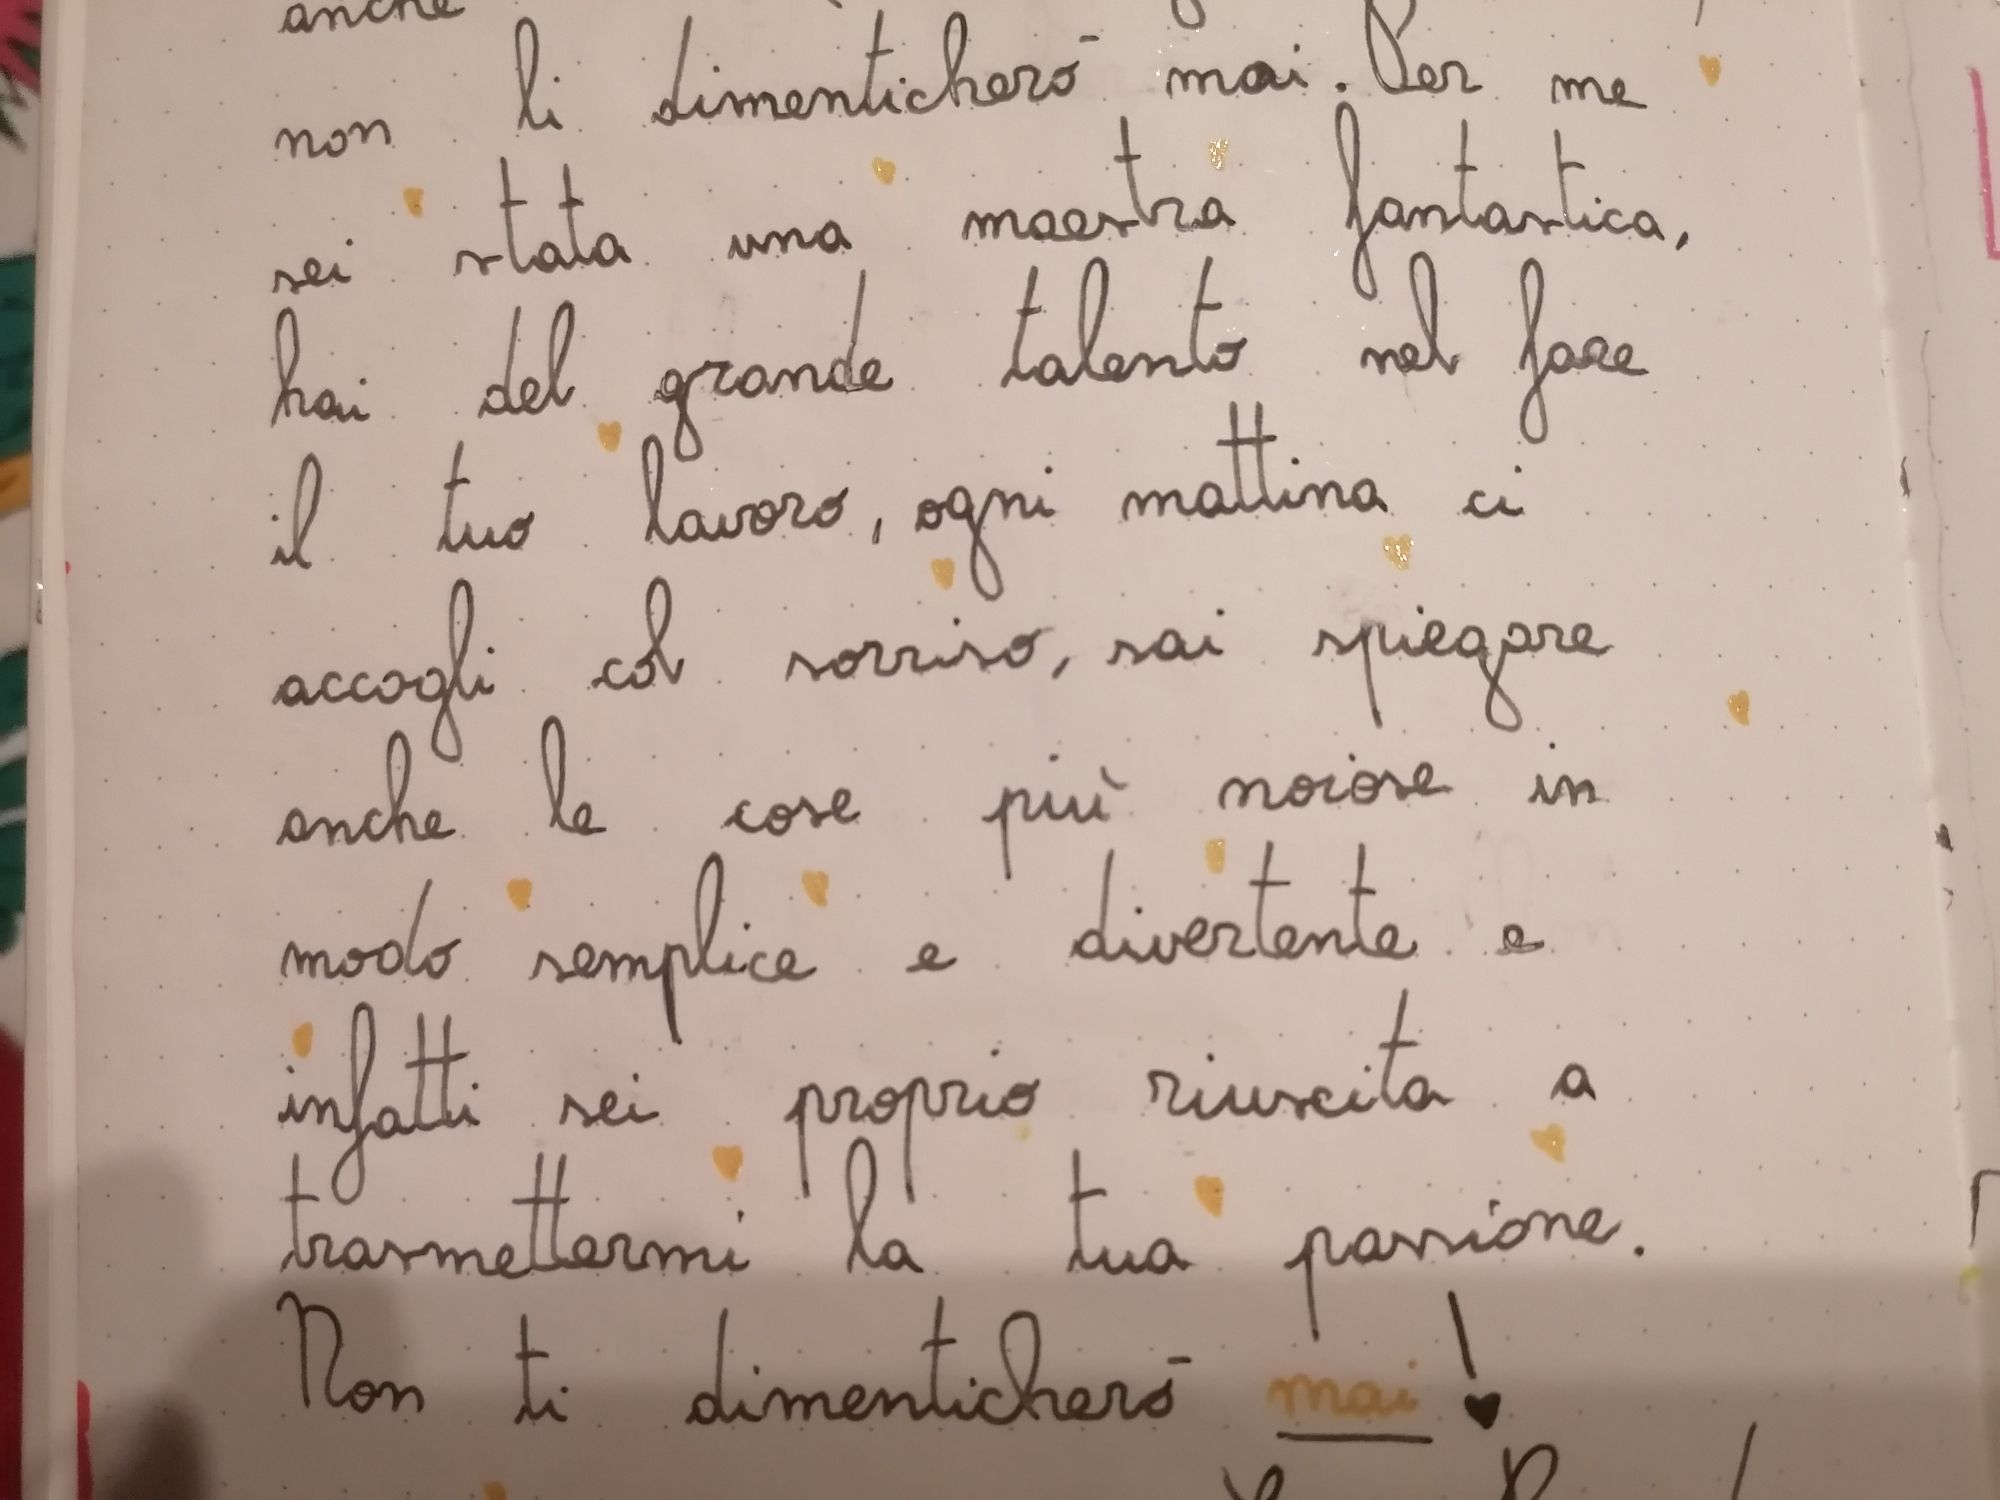 anche
non li dimenticherò mai. Per me
sei stata una maestra fantastica,
hai del grande talento nel fare
il tuo lavoro, ogni mattina ci
accogli col sorriso, sai spiegare
anche le cose più noiose in
modo semplice e divertente e
infatti sei proprio riuscita a
trasmettermi la tua passione.
Non ti dimenticherò mai!